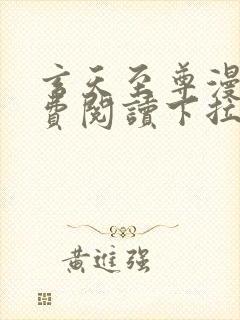 玄天至尊漫
費閱讀下拉
黃進强